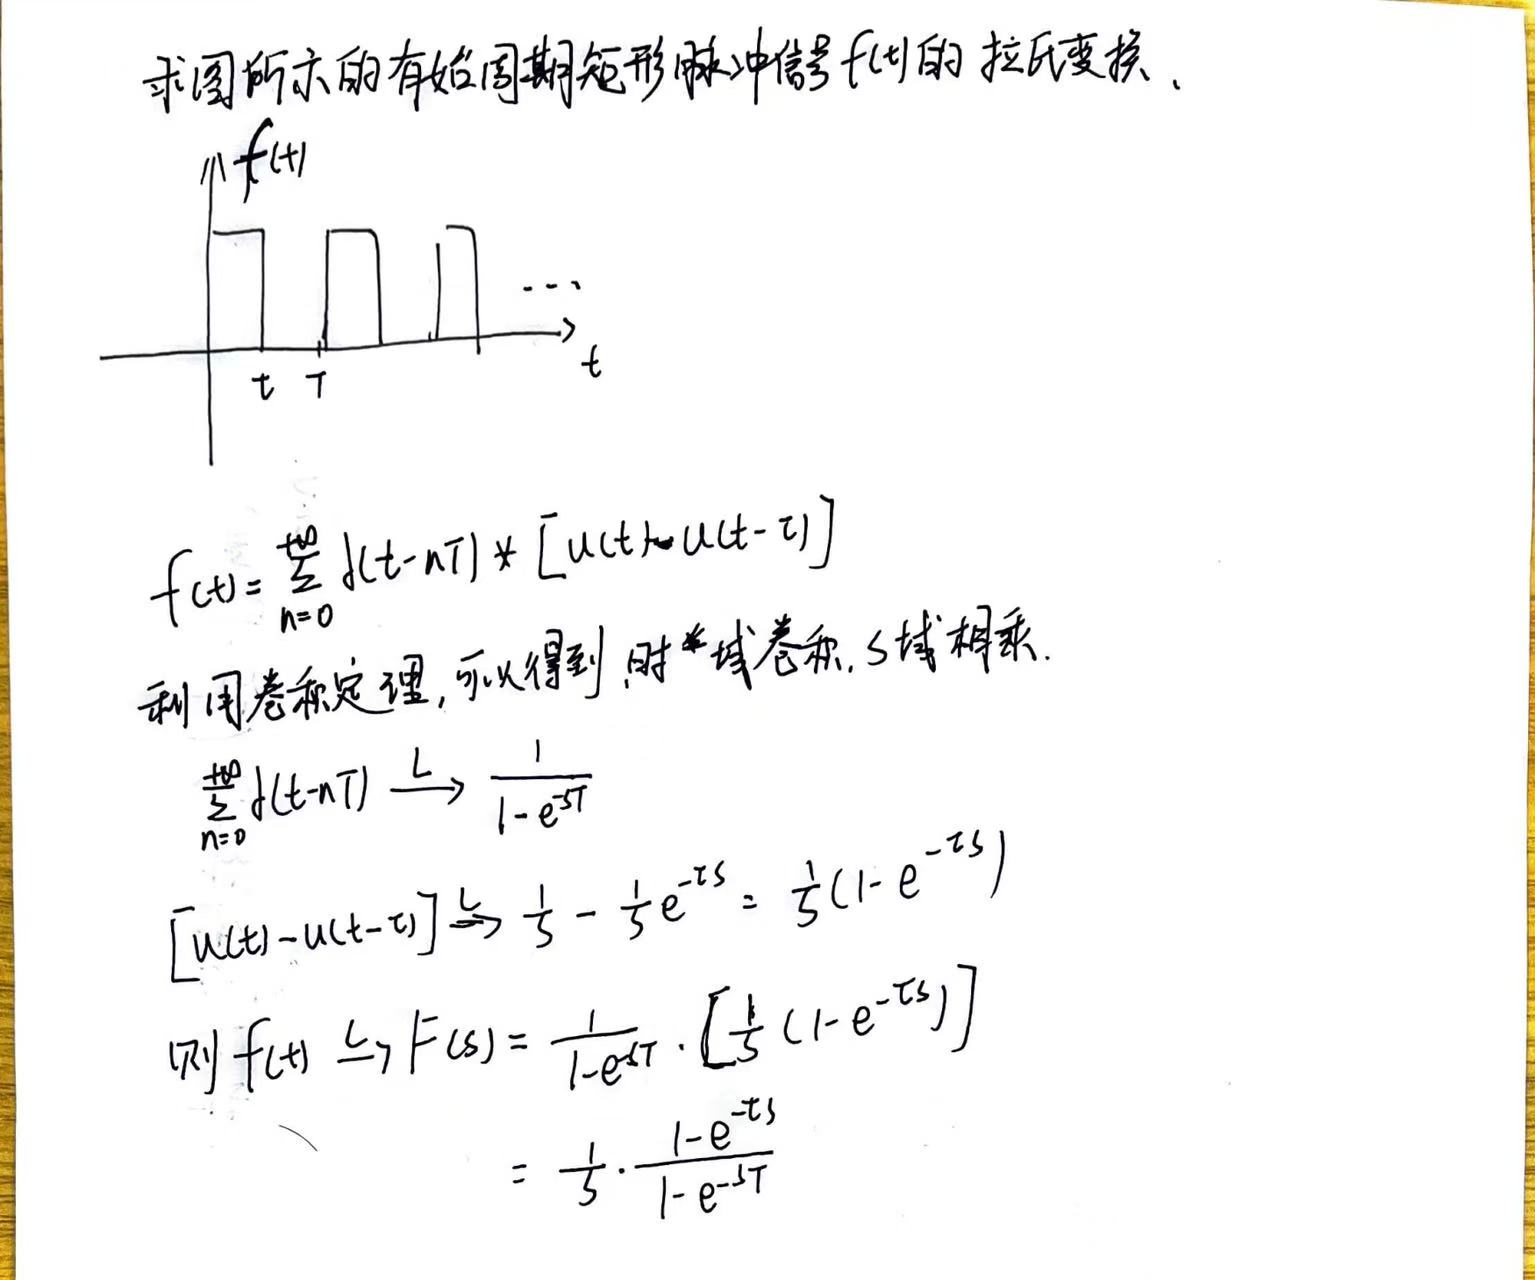 求图所示的有始周期矩形脉冲信号f(t)的拉氏变换.
f(t)
...
t
τ T
f(t)=∑_{n=0}^{+∞} δ(t-nT) * [u(t)-u(t-τ)]
利用卷积定理,可以得到,时域卷积,S域相乘.
∑_{n=0}^{+∞} δ(t-nT) —L→ 1/(1-e^{-sT})
[u(t)-u(t-τ)] —L→ 1/s - 1/s e^{-τs} = 1/s (1-e^{-τs})
则 f(t) —L→ F(s) = 1/(1-e^{-sT}) · [1/s (1-e^{-τs})]
= 1/s · (1-e^{-τs})/(1-e^{-sT})